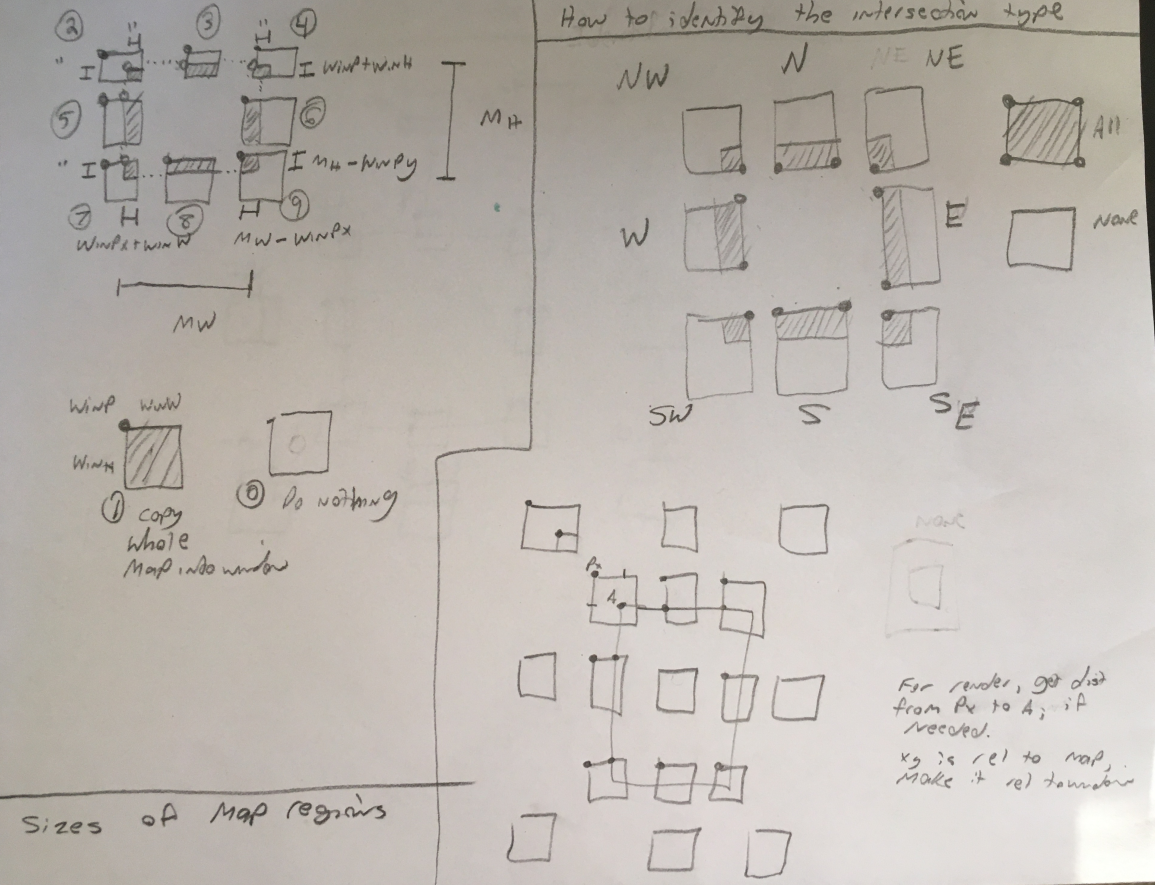 ② H ③ H ④
" I I WinP+WinH
⑤ ⑥ MH
" I I MH-WinPy
⑦ H ⑧ H ⑨
WinPx+WinW MW-WinPx
MW
WinP WinW
WinH
① Copy
Whole
Map into window
⓪ Do nothing
Sizes of Map regions
How to identify the intersection type
NW N NE NE
All
W E None
SW S SE
None
Px
A
For render, get dist
from Px to A; if
needed.
xy is rel to map,
Make it rel to window